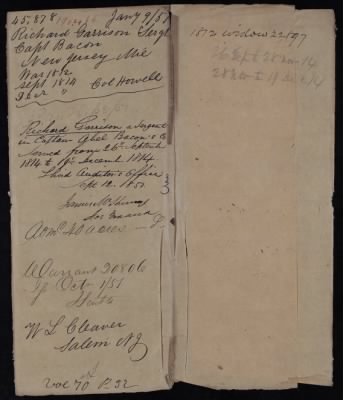 45,878 Jany 9/51
Richard Garrison Sergt
Capt Bacon
New Jersey Mil
War 1812
Sept 1814 Col Howell
Decr "
Richard Garrison a Sergent
in Captain Abel Bacon's Co
served from 26th Septemb
1814 to 19 December 1814
Third Auditor's Office
Sept 12. 1851
for
Acts 40 acres
Warrant 20806
Octr 1/51
W L Cleaver
Salem NJ
Vol 70 P. 32
1812 widow 22197
26 Sept